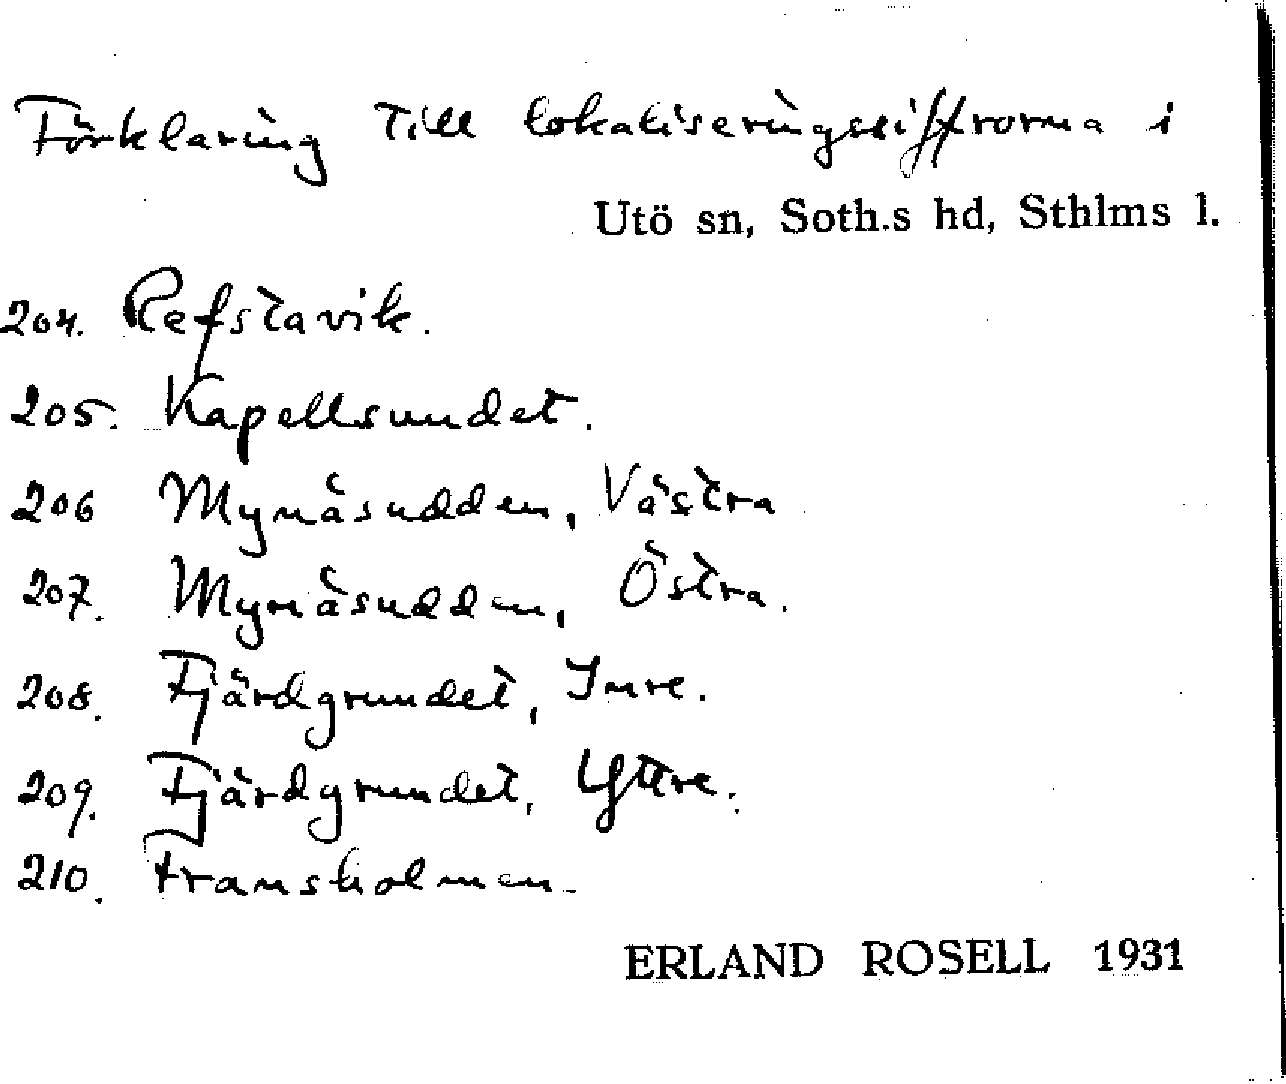 Förklaring till lokaliseringssiffrorna i
Utö sn, Soth.s hd, Sthlms l.
204. Refstavik.
205. Kapellsundet.
206 Mynäsudden, Västra
207. Mynäsudden, Östra.
208. Fjärdgrundet, Inre.
209. Fjärdgrundet, Yttre.
210. Fransholmen.
ERLAND ROSELL 1931